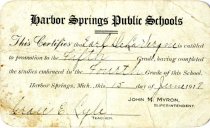 Harbor Springs Public Schools
This Certifies that Earl is entitled
to promotion to the Fifth Grade, having completed
the studies embraced in the Fourth Grade of this School.
Harbor Springs, Mich., this 13 day of June 1918
JOHN M. MYRON,
SUPERINTENDENT.
Grace E. Kyle
TEACHER.